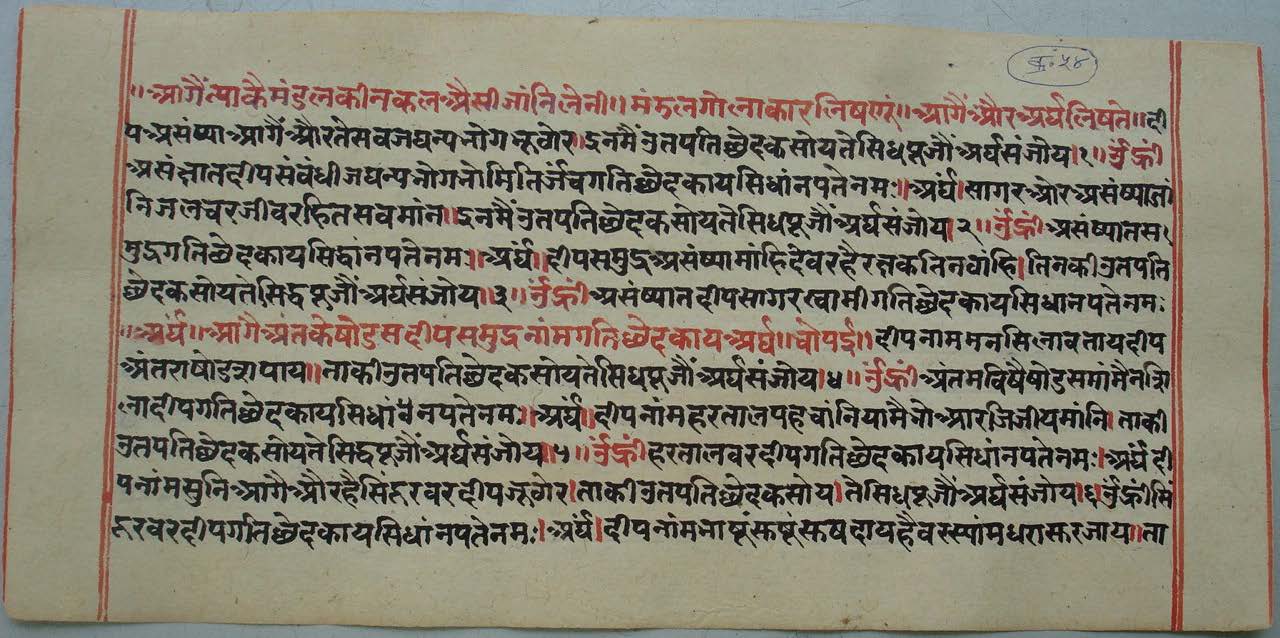 पृ॰ ५४
॥आगैं त्याकै मंडलकी नकल अैसी जांनि लेनी॥ मंडल गोलाकार लिषणूं॥ आगैं और अर्घ लिषते॥ दी
प असंष्या आगैं और ते सब जघन्य भोग भू घेर॥ इनमैं उतपति छेदक सोय ते सिध पूजौं अर्घ संजोय।१॥ ॐ ह्रीं
असंष्यात दीप संबंधी जघन्य भोग भोमि तिर्जंच गति छेदकाय सिधांनपतेनमः। अर्घं। सागर ओर असंष्या जां
नि जलचर जीव रहित सब मांन। इनमैं उतपति छेदक सोय ते सिध पूजौं अर्घ संजोय।२॥ ॐ ह्रीं असंष्यात स
मुद्र गति छेदकाय सिद्धांनपतेनमः। अर्घं॥ दीप समुद्र असंष्या मांहि देव रहै रक्षक तिन ठांहि। तिनकी उतपति
छेदक सोय ते सिद्ध पूजौं अर्घ संजोय॥३॥ ॐ ह्रीं असंष्यात दीप सागर स्वामी गति छेदकाय सिधानपतेनमः
॥अर्घं॥ आगै अंतके षोडस दीप समुद्र नांम गति छेदकाय अर्घ॥ चौपई॥ दीप नाम मनसिला बताय दीप
अंतरा षोडश पाय॥ ताकी उतपति छेदक सोय ते सिध पूजौं अर्घ संजोय।४॥ ॐ ह्रीं अंतम विषै षोडसमांमैनसि
ला दीप गति छेदकाय सिधांनपतेनमः। अर्घं॥ दीप नांम हरताल पहचांनि यामै जो आरजि जीय मांनि। ताकी
उतपति छेदक सोय ते सिद्ध पूजौं अर्घ संजोय॥५॥ ॐ ह्रीं हरतालवर दीप गति छेदकाय सिधांनपतेनमः। अर्घं दी
प नांम सुनि आगै और है सिंदूरवर दीप जु घेर। ताकी उतपति छेदक सोय। ते सिध पूजौं अर्घ संजोय।६ ॐ ह्रीं सिं
दूरवर दीप गति छेदकाय सिधांनपतेनमः। अर्घं। दीप नांम है जाय॥ ता